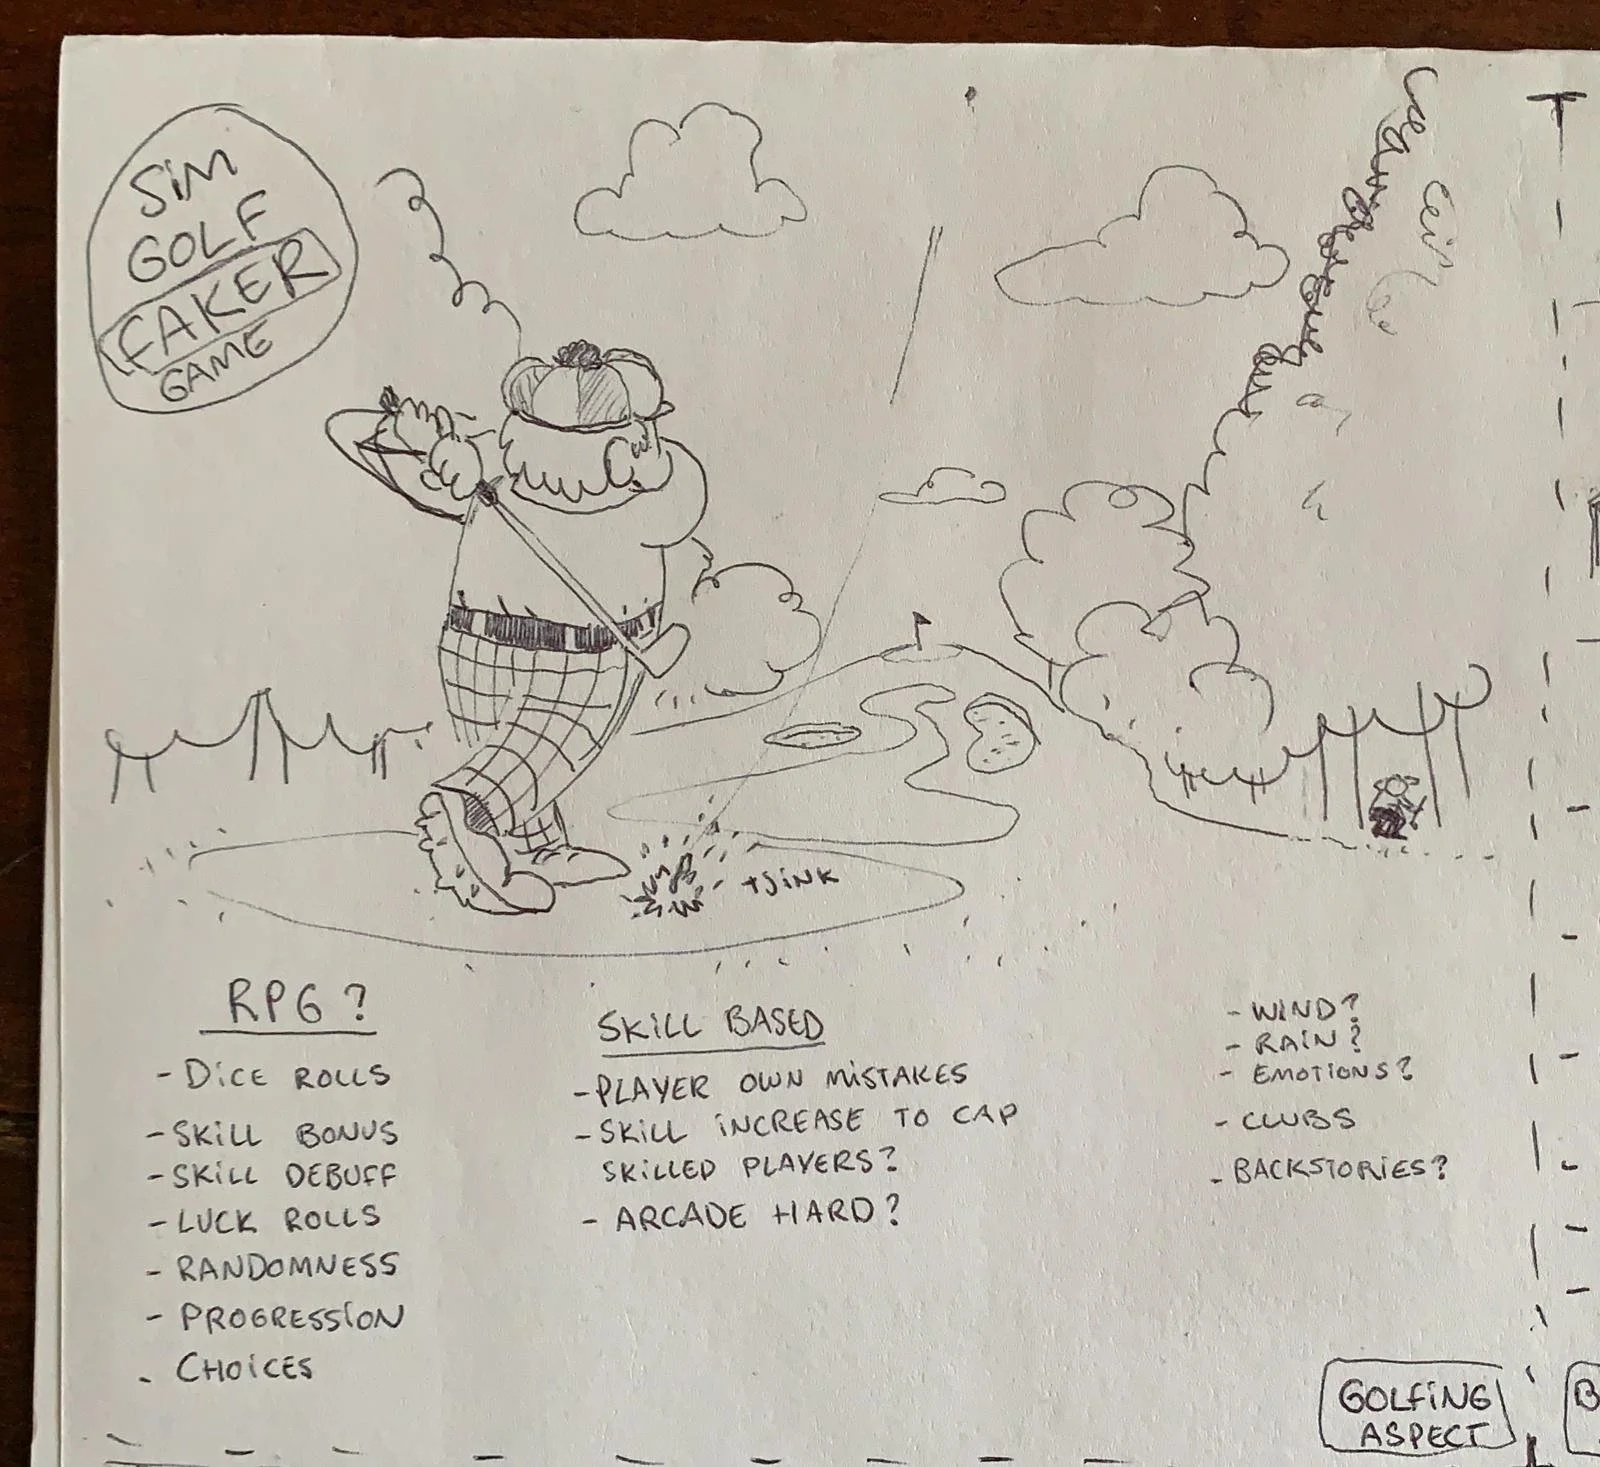 SiM
GOLF
FAKER
GAME
TJiNK
RPG?
- DiCE ROLLS
- SKiLL BONUS
- SKiLL DEBUFF
- LUCK ROLLS
- RANDOMNESS
- PROGRESSiON
- CHOiCES
SKiLL BASED
- PLAYER OWN MiSTAKES
- SKiLL iNCREASE TO CAP
SKiLLED PLAYERS?
- ARCADE HARD?
- WiND?
- RAiN?
- EMOTiONS?
- CLUBS
- BACKSTORiES?
GOLFiNG
ASPECT
B